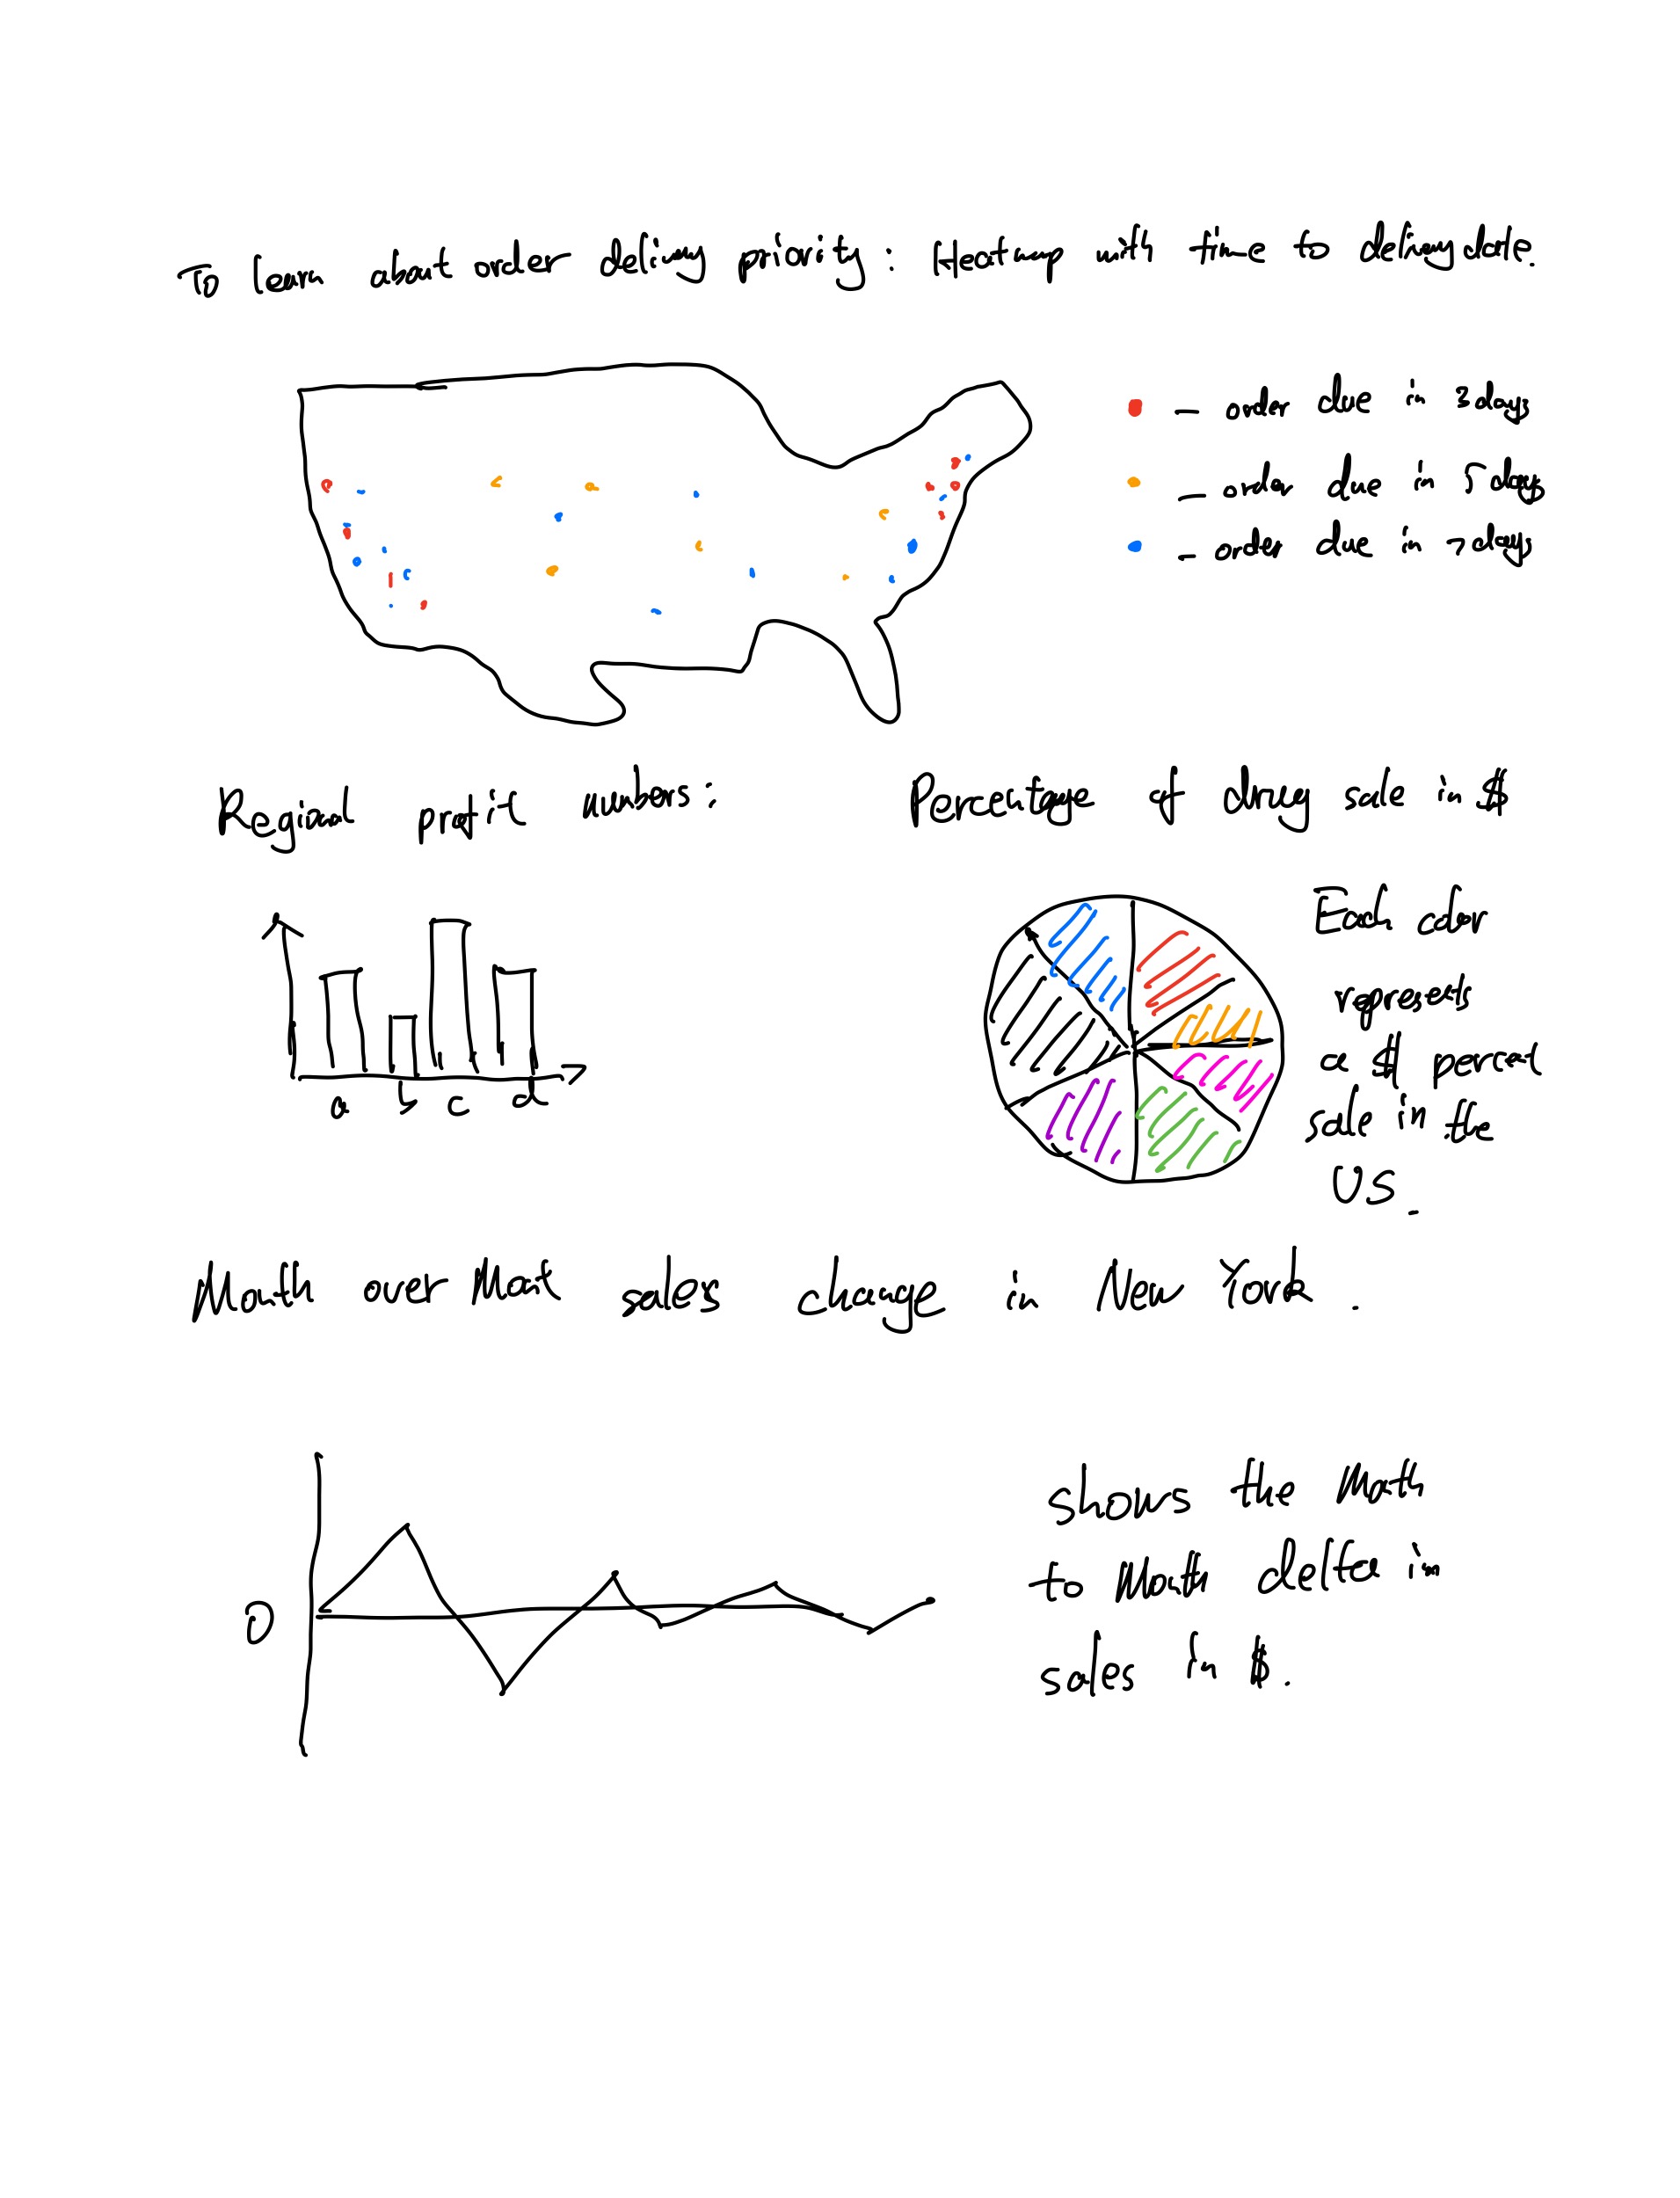 To learn about order delivery priority: Heatmap with time to delivery date.
- order due in 3 days
- order due in 5 days
- order due in 7 days
Regional profit numbers:
Percentage of drug sale in $
Each color
represents
a $ percent
sale in the
US.
a b c d
Month over Month sales change in New York.
0
shows the Month
to Month delta in
sales in $.